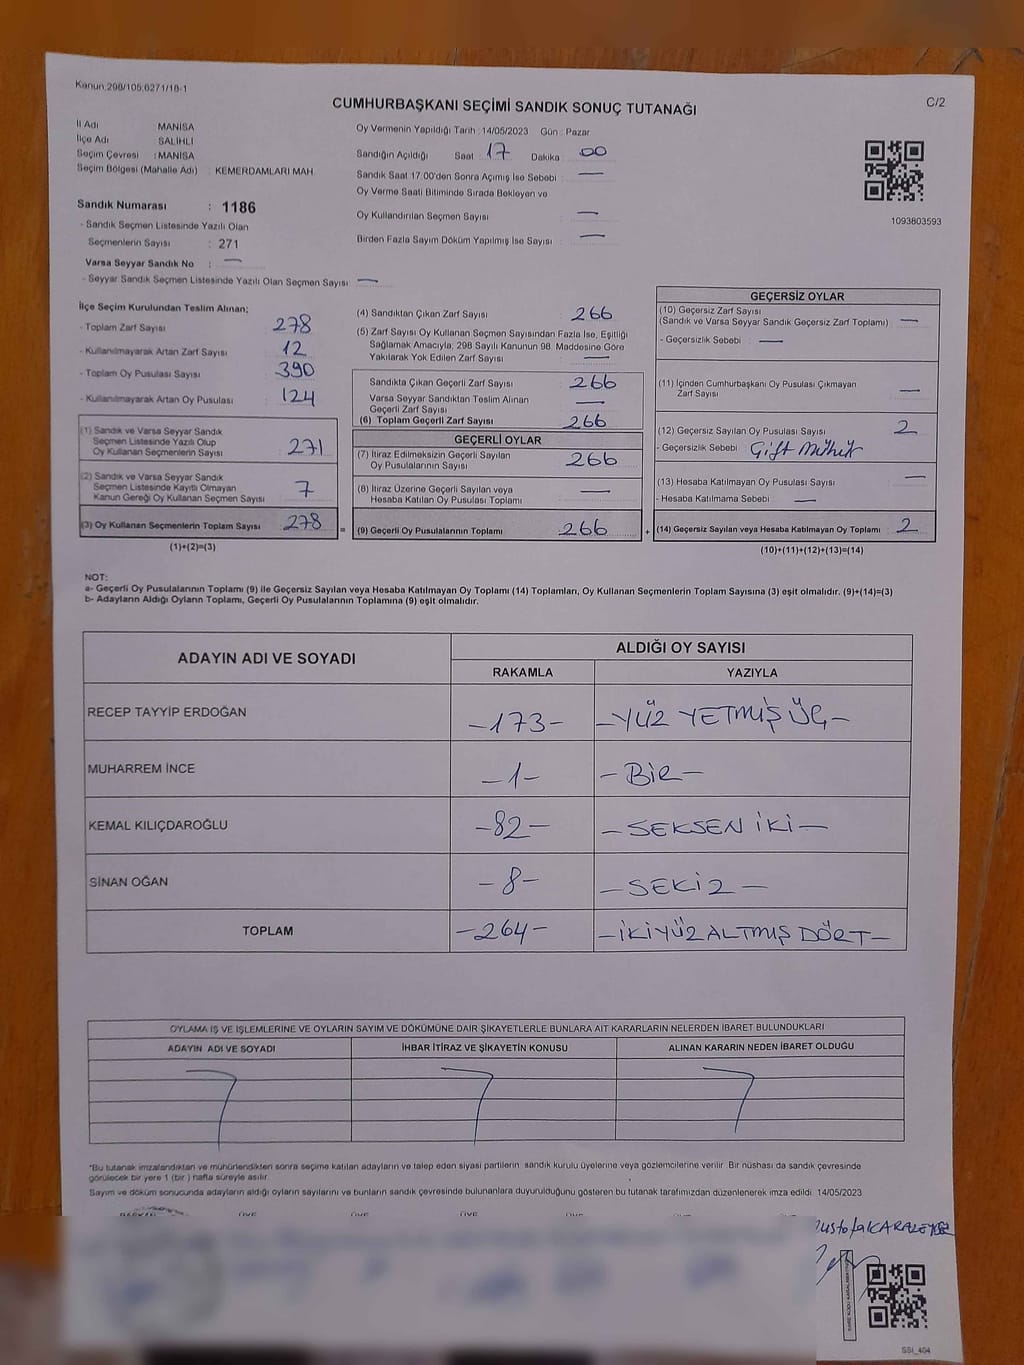 Kanun:298/105,6271/18-1
CUMHURBAŞKANI SEÇİMİ SANDIK SONUÇ TUTANAĞI
C/2
İl Adı MANİSA
İlçe Adı SALİHLİ
Seçim Çevresi : MANİSA
Seçim Bölgesi (Mahalle Adı) : KEMERDAMLARI MAH.
Sandık Numarası : 1186
- Sandık Seçmen Listesinde Yazılı Olan
Seçmenlerin Sayısı : 271
Varsa Seyyar Sandık No : —
- Seyyar Sandık Seçmen Listesinde Yazılı Olan Seçmen Sayısı : —
Oy Vermenin Yapıldığı Tarih : 14/05/2023 Gün : Pazar
Sandığın Açıldığı Saat 17 Dakika 00
Sandık Saat 17.00'den Sonra Açımış İse Sebebi : —
Oy Verme Saati Bitiminde Sırada Bekleyen ve
Oy Kullandırılan Seçmen Sayısı : —
Birden Fazla Sayım Döküm Yapılmış İse Sayısı : —
1093803593
İlçe Seçim Kurulundan Teslim Alınan;
- Toplam Zarf Sayısı 278
- Kullanılmayarak Artan Zarf Sayısı 12
- Toplam Oy Pusulası Sayısı 390
- Kullanılmayarak Artan Oy Pusulası 124
(1) Sandık ve Varsa Seyyar Sandık
Seçmen Listesinde Yazılı Olup
Oy Kullanan Seçmenlerin Sayısı 271
(2) Sandık ve Varsa Seyyar Sandık
Seçmen Listesinde Kayıtlı Olmayan
Kanun Gereği Oy Kullanan Seçmen Sayısı 7
(3) Oy Kullanan Seçmenlerin Toplam Sayısı 278
(1)+(2)=(3)
=
(4) Sandıktan Çıkan Zarf Sayısı 266
(5) Zarf Sayısı Oy Kullanan Seçmen Sayısından Fazla İse, Eşitliği
Sağlamak Amacıyla; 298 Sayılı Kanunun 98. Maddesine Göre
Yakılarak Yok Edilen Zarf Sayısı —
Sandıkta Çıkan Geçerli Zarf Sayısı 266
Varsa Seyyar Sandıktan Teslim Alınan
Geçerli Zarf Sayısı —
(6) Toplam Geçerli Zarf Sayısı 266
GEÇERLİ OYLAR
(7) İtiraz Edilmeksizin Geçerli Sayılan
Oy Pusulalarının Sayısı 266
(8) İtiraz Üzerine Geçerli Sayılan veya
Hesaba Katılan Oy Pusulası Toplamı —
(9) Geçerli Oy Pusulalarının Toplamı 266
+
GEÇERSİZ OYLAR
(10) Geçersiz Zarf Sayısı
(Sandık ve Varsa Seyyar Sandık Geçersiz Zarf Toplamı) —
- Geçersizlik Sebebi : —
(11) İçinden Cumhurbaşkanı Oy Pusulası Çıkmayan
Zarf Sayısı —
(12) Geçersiz Sayılan Oy Pusulası Sayısı 2
- Geçersizlik Sebebi Çift Mühür
(13) Hesaba Katılmayan Oy Pusulası Sayısı —
- Hesaba Katılmama Sebebi : —
(14) Geçersiz Sayılan veya Hesaba Katılmayan Oy Toplamı 2
(10)+(11)+(12)+(13)=(14)
NOT:
a- Geçerli Oy Pusulalarının Toplamı (9) ile Geçersiz Sayılan veya Hesaba Katılmayan Oy Toplamı (14) Toplamları, Oy Kullanan Seçmenlerin Toplam Sayısına (3) eşit olmalıdır. (9)+(14)=(3)
b- Adayların Aldığı Oyların Toplamı, Geçerli Oy Pusulalarının Toplamına (9) eşit olmalıdır.
ADAYIN ADI VE SOYADI
ALDIĞI OY SAYISI
RAKAMLA YAZIYLA
RECEP TAYYİP ERDOĞAN -173- -YÜZ YETMİŞ ÜÇ-
MUHARREM İNCE -1- -BİR-
KEMAL KILIÇDAROĞLU -82- -SEKSEN İKİ-
SİNAN OĞAN -8- -SEKİZ-
TOPLAM -264- -İKİYÜZ ALTMIŞ DÖRT-
OYLAMA İŞ VE İŞLEMLERİNE VE OYLARIN SAYIM VE DÖKÜMÜNE DAİR ŞİKAYETLERLE BUNLARA AİT KARARLARIN NELERDEN İBARET BULUNDUKLARI
ADAYIN ADI VE SOYADI İHBAR İTİRAZ VE ŞİKAYETİN KONUSU ALINAN KARARIN NEDEN İBARET OLDUĞU
*Bu tutanak imzalandıktan ve mühürlendikten sonra seçime katılan adayların ve talep eden siyasi partilerin sandık kurulu üyelerine veya gözlemcilerine verilir. Bir nüshası da sandık çevresinde
görülecek bir yere 1 (bir ) hafta süreyle asılır.
Sayım ve döküm sonucunda adayların aldığı oyların sayılarını ve bunların sandık çevresinde bulunanlara duyurulduğunu gösteren bu tutanak tarafımızdan düzenlenerek imza edildi. 14/05/2023
SSI_404